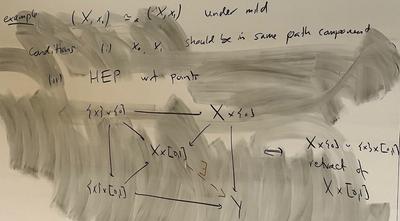 example (X, x₀) ≃ (X, x₁) under mild
conditions (i) x₀, x₁ should be in same path component
(ii) HEP wrt points
{x} × {0} X × {0}
X × [0,1] ⇔ X × {0} ∪ {x} × [0,1]
retract of
{x} × [0,1] Y X × [0,1]